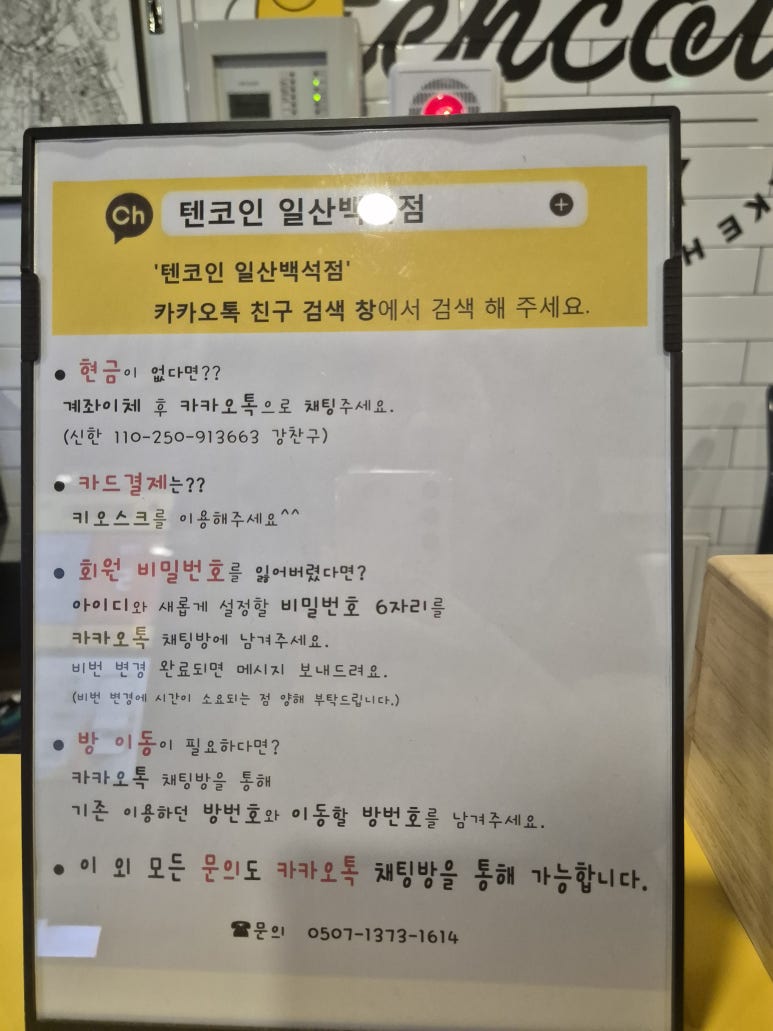 encoi
KE H
Ch 텐코인 일산백석점
'텐코인 일산백석점'
카카오톡 친구 검색 창에서 검색 해 주세요.
● 현금이 없다면??
계좌이체 후 카카오톡으로 채팅주세요.
(신한 110-250-913663 강찬구)
● 카드결제는??
키오스크를 이용해주세요^^
● 회원 비밀번호를 잃어버렸다면?
아이디와 새롭게 설정할 비밀번호 6자리를
카카오톡 채팅방에 남겨주세요.
비번 변경 완료되면 메시지 보내드려요.
(비번 변경에 시간이 소요되는 점 양해 부탁드립니다.)
● 방 이동이 필요하다면?
카카오톡 채팅방을 통해
기존 이용하던 방번호와 이동할 방번호를 남겨주세요.
● 이 외 모든 문의도 카카오톡 채팅방을 통해 가능합니다.
☎문의 0507-1373-1614